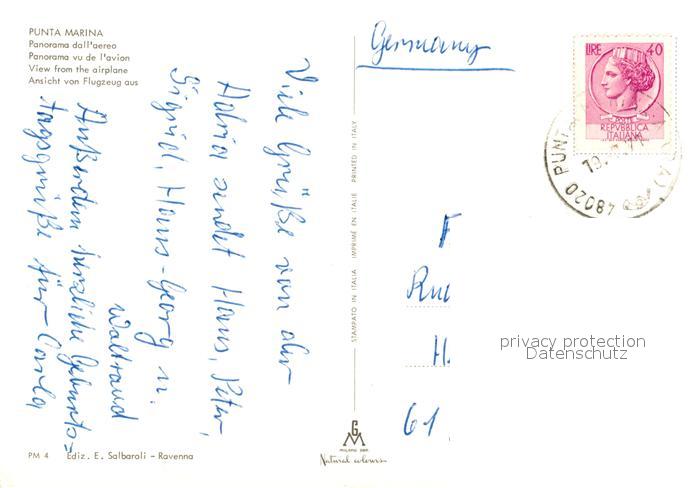 PUNTA MARINA
Panorama dall'aereo
Panorama vu de l'avion
View from the airplane
Ansicht von Flugzeug aus
Viele Grüße von der
Adria sendet Hans, Peter,
Sigrid, Hans-Georg u.
Waltraud
Außerdem herzliche Geburts=
tagsgrüße für Carla
PM 4 Ediz. E. Salbaroli - Ravenna
STAMPATO IN ITALIA IMPRIMÉ EN ITALIE PRINTED IN ITALY
GM
MILANO
Natural colours
Germany
LIRE 40
POSTE
REPVBBLICA
ITALIANA
48020 PUNT
19
Rue
H.
61
privacy protection
Datenschutz